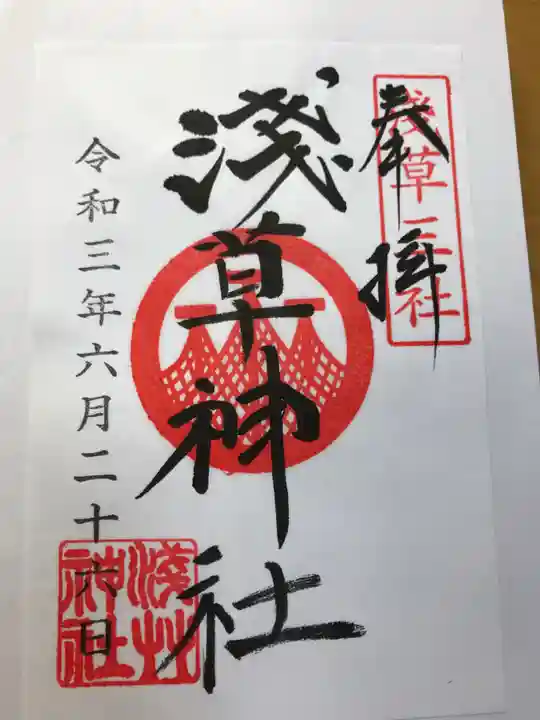 奉拝
淺草三社
淺草神社
令和三年六月二十六日
淺艸神社